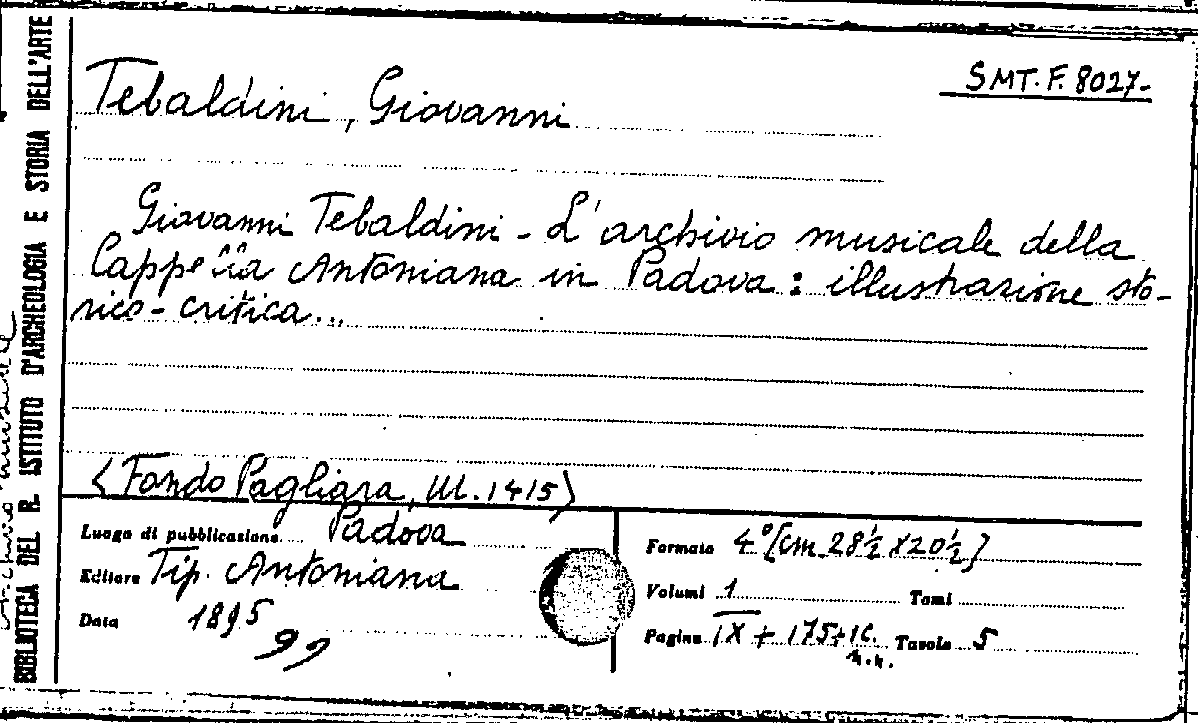 BIBLIOTECA DEL R. ISTITUTO D'ARCHEOLOGIA E STORIA DELL'ARTE
SMT. F. 8027-
Tebaldini, Giovanni
Giovanni Tebaldini - L'archivio musicale della
Cappella Antoniana in Padova : illustrazione sto-
rico-critica...
(Fondo Pagliara, M. 1415)
Luogo di pubblicazione Padova
Editore Tip. Antoniana
Data 1895
99
Formato 4° [cm 28½ x 20½]
Volumi 1 Tomi
Pagine IX + 175+1c. Tavole 5
n.n.